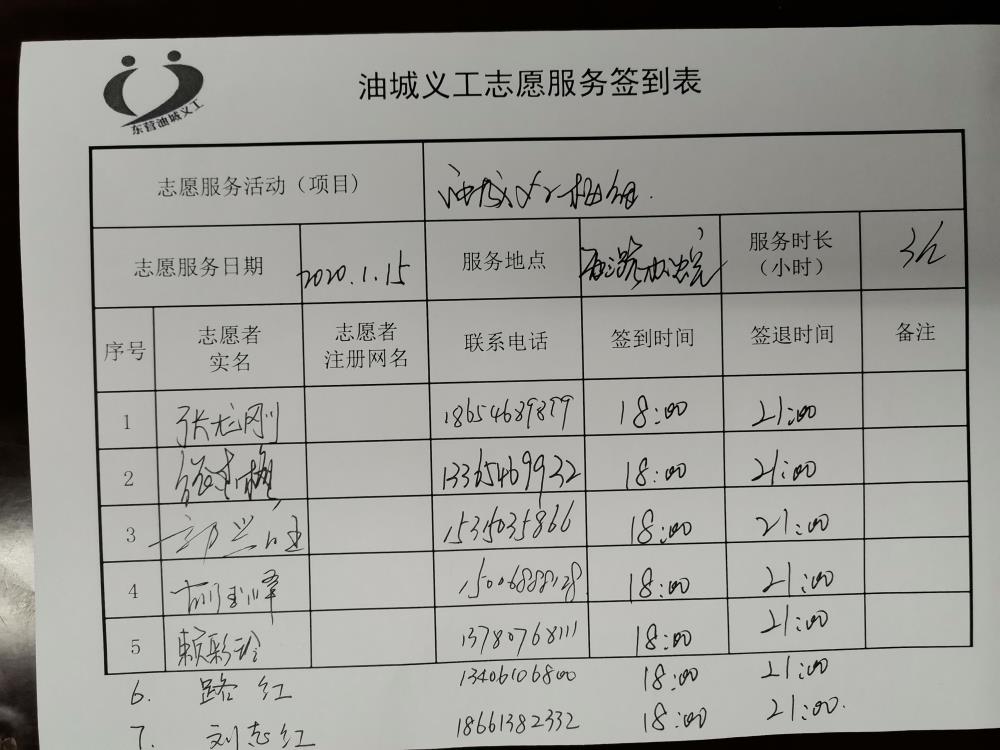 东营油城义工
油城义工志愿服务签到表
志愿服务活动（项目） 油城义工
志愿服务日期 2020.1.15 服务地点 服务时长（小时）
序号 志愿者实名 志愿者注册网名 联系电话 签到时间 签退时间 备注
1 张龙刚 18654689879 18:00 21:00
2 13365469932 18:00 21:00
3 15315035866 18:00 21:00
4 胡玉峰 15006888128 18:00 21:00
5 赖彩玲 13780768111 18:00 21:00
6. 路红 13406106800 18:00 21:00
7. 刘志红 18661382332 18:00 21:00.